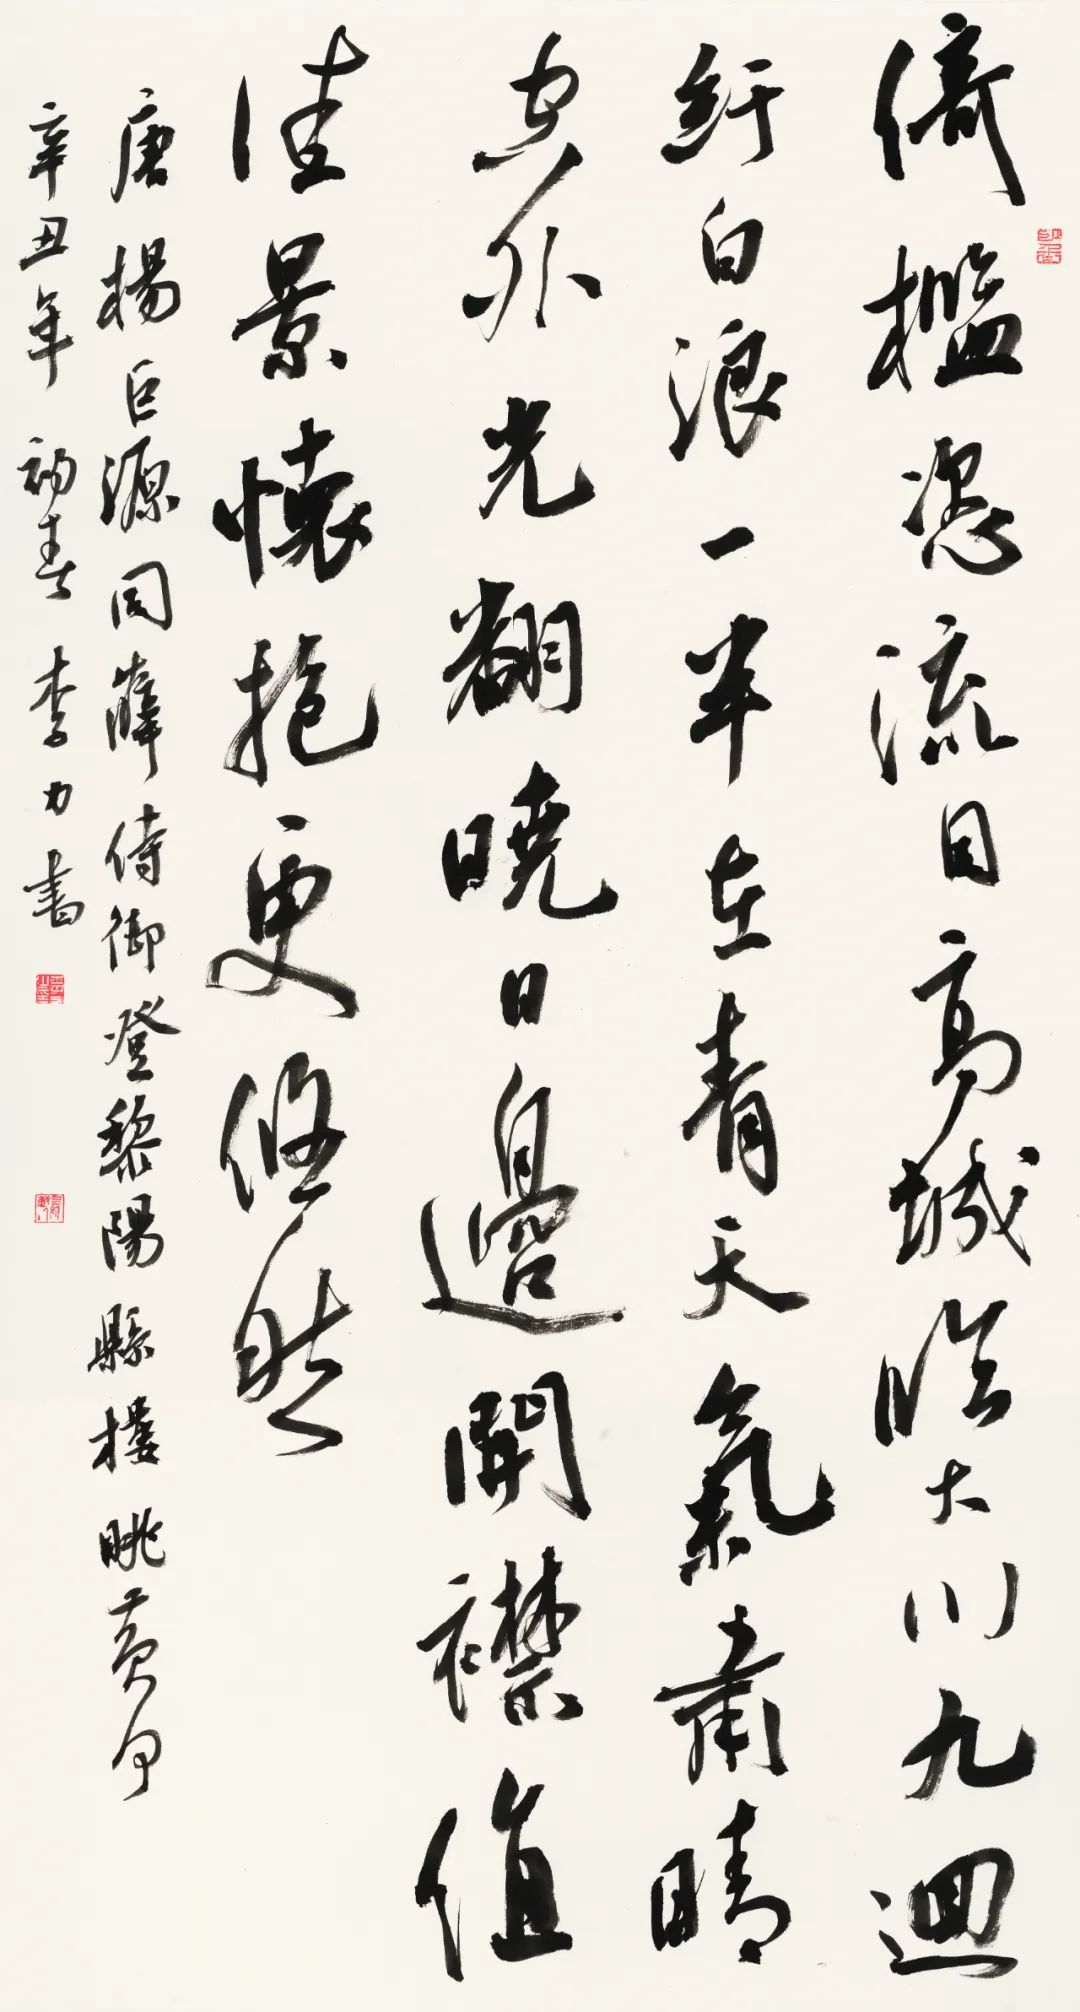 倚檻恣流目高城臨大川九迴
紆白浪一半在青天氣肅晴
空外光翻曉日邊開襟值
佳景懷抱更悠然
唐楊巨源同薛侍御登黎陽縣樓眺黃河
辛丑年初春李力書